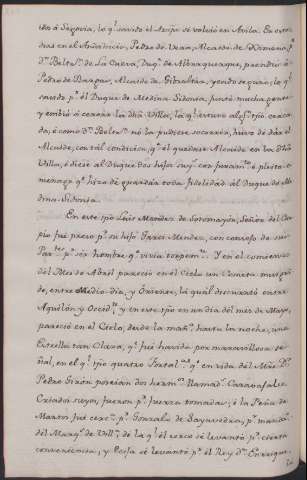 ido à Segovia, lo q.l savido el Arzp.o se volvió en Avila. En estos
dias en el Andalucia, Pedro de Vera, Alcaide de Ximena, p.r
D.n Belt.n de La Cueva, Duq.e de Alburquerque, prendió à
Pedro de Bargas, Alcaide de Gibraltar, yendo seguro; lo q.l
savido p.r el Duque de Medina Sidonia, juntó mucha gente
y embió à cercar la d̃ha Villa, la q.l estuvo alg.n tp̃o cerca-
da, è como D.n Belt.n no la pudiese socorrer, hizo se dar el
Alcaide, con tal condicion, q.e el quedase Alcaide en la d̃ha
Villa, è diese al Duque dos hijos suyos con juram.to è pleito o-
menage q.e hizo de guardar toda fidelidad al Duque de Me-
dina-Sidonia.
En este tp̃o Luis Mendez de Sotomayor, Señor del Car-
pio fué preso p.r su hijo Garci Mendez, con consejo de sus
Par.tes p.r ser hombre q.e vivia torpem.te. Y en el comienzo
del Mes de Abril pareció en el Cielo un Cometa mui gran-
de, entre Medio-dia, y Oriente, la qual discurrió entre
Aguilon y Occid.te y en este tp̃o en un dia del mes de Mayo,
pareció en el Cielo, desde la mañ.a hasta la noche, una
Estrella tan Clara, q.e fué havida por maravillosa se-
ñal, en el q.l tp̃o quatro Fortal.as q.e en vida del Mre D.n
Pedro Giron poseian dos herm.os llamad.s Caravajales
Criados suyos, fueron p.r fuerza tomadas; è la Peña de
Martos fué cerc.a p.r Gonzalo de Saavedra, p.r mand.o
del Marq.s de Vill.a de la q.l el cerco se levantó p.r cierta
conveniencia; y Ecija se levantó p.r el Rey D.n Enrique.